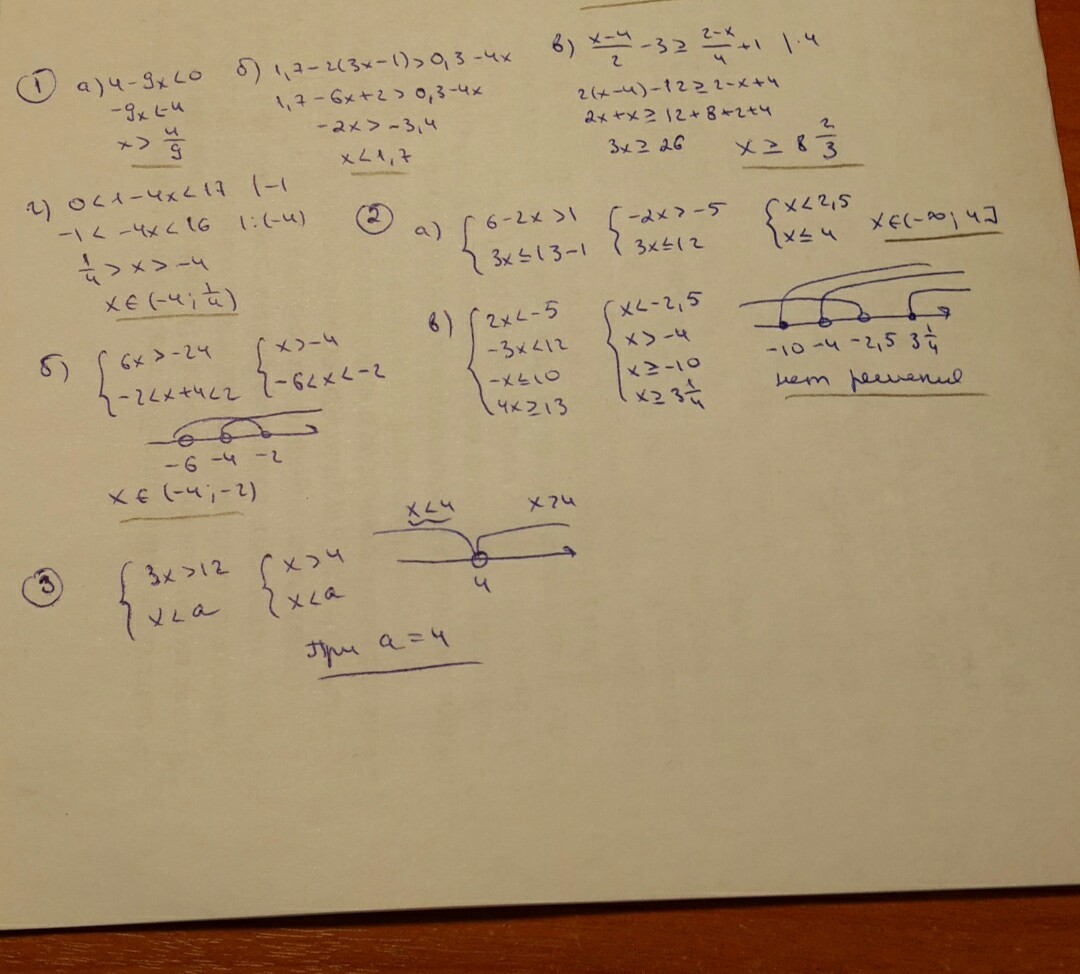 ① а) 4-9x<0
-9x<-4
x > 4/9
б) 1,7-2(3x-1)>0,3-4x
1,7-6x+2>0,3-4x
-2x>-3,4
x<1,7
в) (x-4)/2 -3 ≥ (2-x)/4 +1 |·4
2(x-4)-12≥2-x+4
2x+x≥12+8+2+4
3x≥26 x≥8 2/3
г) 0<1-4x<17 |-1
-1<-4x<16 |:(-4)
1/4 > x > -4
x∈(-4; 1/4)
② а) { 6-2x>1 { -2x>-5 { x<2,5 x∈(-∞; 4]
3x≤13-1 3x≤12 x≤4
б) { 6x>-24 { x>-4
-2<x+4<2 -6<x<-2
-6 -4 -2
x∈(-4;-2)
в) { 2x<-5 { x<-2,5
-3x<12 x>-4
-x≤10 x≥-10
4x≥13 x≥3 1/4
-10 -4 -2,5 3 1/4
нет решения
③ { 3x>12 { x>4
x<a x<a
x<4 x>4
4
При a=4